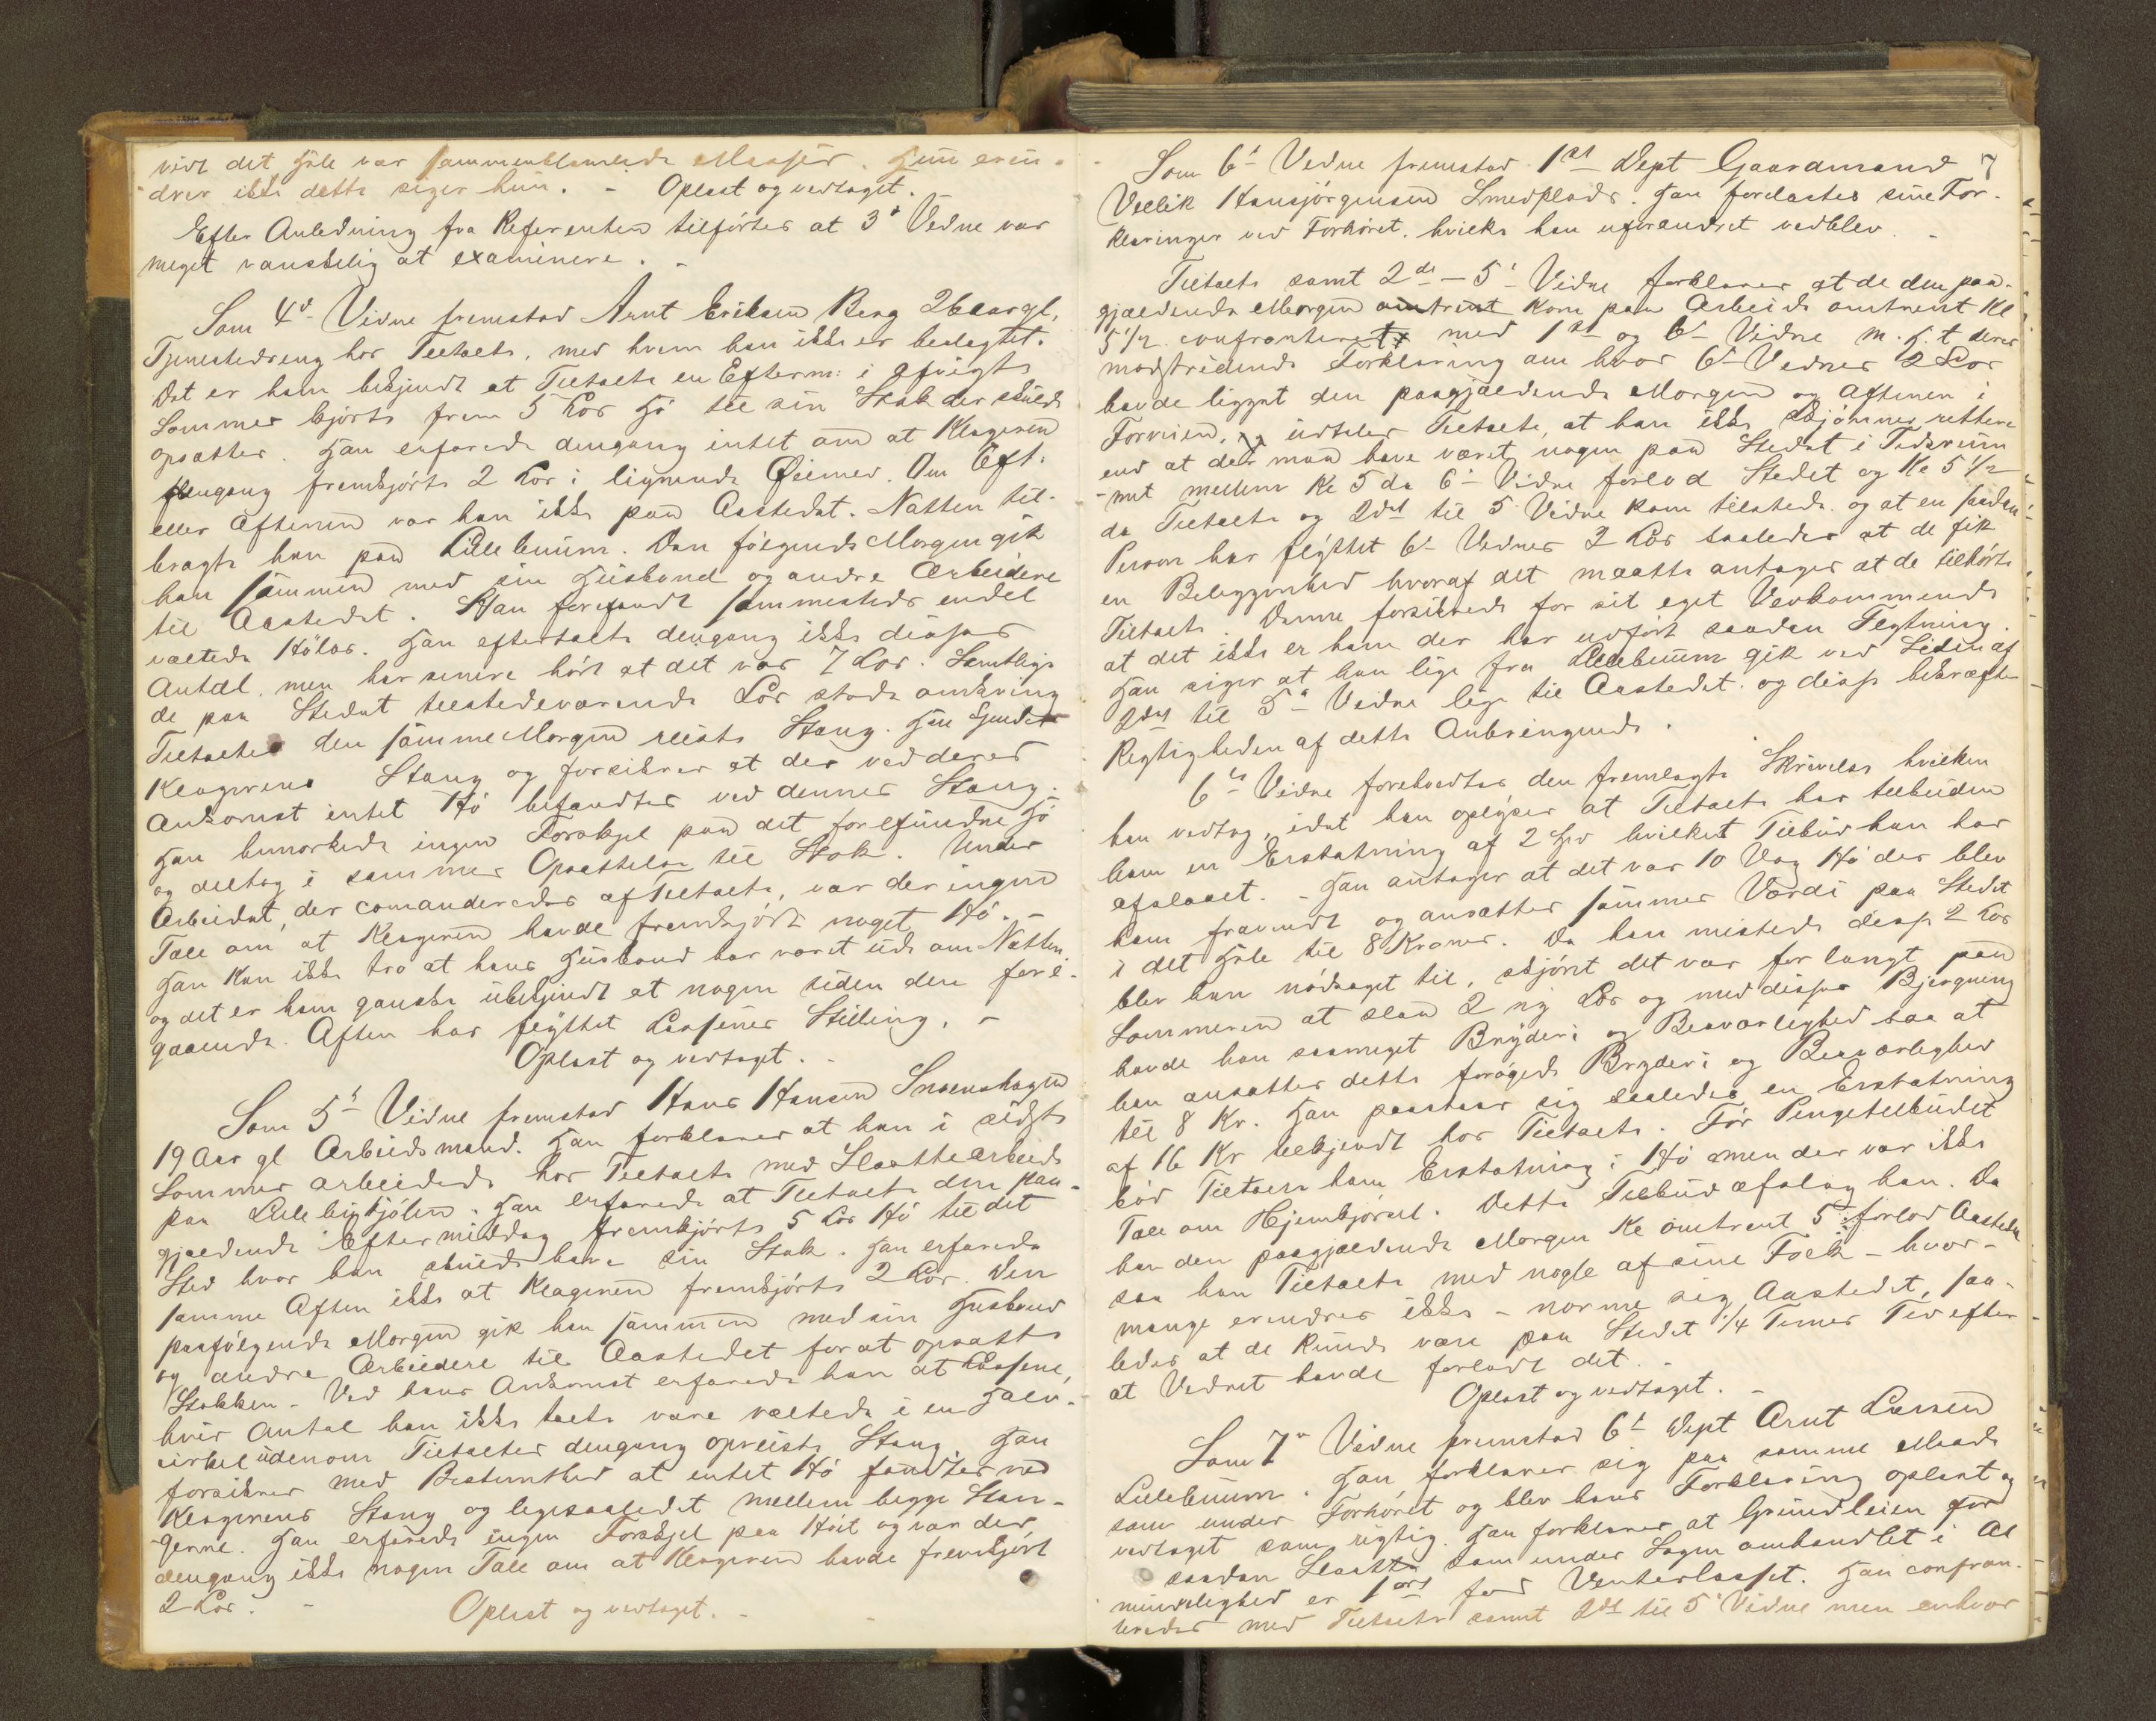 vidt det Hele var sammenblandede Masser. Hun erin-
drer ikke dette siger hun. - Oplæst og vedtaget. -
Efter Anledning fra Referenten tilføres at 3d Vidne var
meget vanskelig at examinere. -
Som 4d Vidne fremstod Arnt Eriksen Berg 26 aar gl,
Tjenestedreng hos Tiltalte, med hvem han ikke er beslægtet.
Det er ham bekjendt at Tiltalte en Efterm: i afvigte
Sommer kjørte frem 5 Lør Hø til sin Stak der skulde
opsættes. Han erfarede dengang intet om at Klageren
dengang fremkjørte 2 Lør i lignende Øiemed. Om Eft.
eller Aftenen var han ikke paa Aastedet. Natten til-
bragte han paa Lillebuum. Den følgende Morgen gik
han sammen med sin Husbond og andre Arbeidere
til Aastedet. Han forefandt sammesteds endel
væltede Hølør. Han eftertalte dengang ikke disses
Antal, men har senere hørt at det var 7 Lør. Samtlige
de paa Stedet tilstedeværende Lør stode omkring
Tiltaltes den samme Morgen reiste Stang. Han kjendte
Klagerens Stang og forsikrer at der ved deres
Ankomst intet Hø befandtes ved dennes Stang.
Han bemærkede ingen Forskjel paa det forefundne Hø
og deltog i sammes Opsættelse til Stak. Under
Arbeidet, der comanderedes af Tiltalte, var der ingen
Tale om at Klageren havde fremkjørt noget Hø. -
Han kan ikke tro at hans Husbond har været ude om Natten,
og det er ham ganske ubekjendt at nogen siden den fore-
gaaende Aften har flyttet Læssenes Stilling. -
Oplæst og vedtaget. -
Som 5d Vidne fremstod Hans Hansen Snoenshagen
19 Aar gl Arbeidsmand. Han forklarer at han i sidste
Sommer arbeidede hos Tiltalte med Slaattearbeide
paa Lillebukjølen. Han erfarede at Tiltalte den paa-
gjældende Eftermiddag fremkjørte 5 Lør Hø til det
Sted hvor han skulde have sin Stak. Han erfarede
samme Aften ikke at Klageren fremkjørte 2 Lør. Den
paafølgende Morgen gik han sammen med sin Husbond
og andre Arbeidere til Aastedet for at opsætte
Stakken - Ved hans Ankomst erfarede han at Læssene,
hvis Antal han ikke talte vare væltede i en Halv-
cirkel udenom Tiltaltes dengang opreiste Stang. Han
forsikrer med Bestemthed at intet Hø fandtes ved
Klagerens Stang og ligesaalidet mellem begge Stæn-
gerne. Han erfarede ingen Forskjel paa Høit og var der
dengang ikke nogen Tale om at Klageren havde fremkjørt
2 Lør. -
Oplæst og vedtaget. -
7
Som 6t Vidne fremstod 1ste Dept Gaardmand
Vellik Hansjørgensen Smedplads. Han forelæstes sine For-
klaringer ved Forhøret, hvilke han uforandret vedblev. -
Tiltalte samt 2de - 5t Vidne forklarer at de den paa-
gjældende Morgen omtrent kom paa Arbeide omtrent Kl
5 1/2. confronteret med 1ste og 6t Vidne m. H. t deres
modstridende Forklaring om hvor 6t Vidnes 2 Lør
havde ligget den paagjældende Morgen og Aftenen i
Forveien, udtaler Tiltalte, at han ikke skjønner rettere
end at der maa have været nogen paa Stedet i Tidsrum
-met mellem Kl 5 da 6t Vidne forlod Stedet og Kl 5 1/2
da Tiltalte og 2det til 5 Vidne kom tilstede og at en saadan
Person har flyttet 6t Vidnes 2 Lør saaledes at de fik
en Beliggenhed hvoraf det maatte antages at de tilhørte
Tiltalte. Denne forsikrede for sit eget Vedkommende
at det ikke er ham der har udført saadan Flytning.
Han siger at han lige fra Lillebuum gik ved Siden af
2det til 5t Vidne lige til Aastedet, og disse bekræfte
Rigtigheden af dette Anbringende.
6te Vidne foreholdtes den fremlagte Skrivelse hvilken
han vedtog, idet han oplyser at Tiltalte har tilbuden
ham en Erstatning af 2 Spd hvilket Tilbud han har
afslaaet. - Han antager at det var 10 Vog Hø der blev
ham fravendt og ansætter sammes Værdi paa Stedet
i det Hele til 8 Kroner. Da han mistede disse 2 Lør
blev han nødsaget til, skjønt det var for langt paa
Sommeren at slaa 2 ny Lør og med disses Bjergning
havde han saameget Bryderi og Besværlighed saa at
han ansætter dette forøgede Bryderi og Besværlighed
til 8 Kr. Han paastaar sig saaledes en Erstatning
af 16 Kr tilkjendt hos Tiltalte. Før Pengetilbudet
bød Tiltalte ham Erstatning i Hø men der var ikke
Tale om Hjemkjørsel. Dette Tilbud afslog han. Da
han den paagjældende Morgen Kl omtrent 5 forlod Aastedet
saa han Tiltalte med nogle af sine Folk - hvor-
mange erindres ikke - nærme sig Aastedet, saa-
ledes at de kunde være paa Stedet 1/4 Times Tid efter
at Vidnet havde forladt det. -
Oplæst og vedtaget. -
Som 7de Vidne fremstod 6t Dept Arnt Larsen
Lillebuum. Han forklarer sig paa samme Maade
som under Forhøret og blev hans Forklaring oplæst og
vedtaget som rigtig. Han forklarer at Grundleien for
saadan Slaatte som under Sagen omhandlet i Al
mindelighed er 1 ort for Vinterlasset. Han confron-
teredes med Tiltalte samt 2det til 5 Vidne men enhver